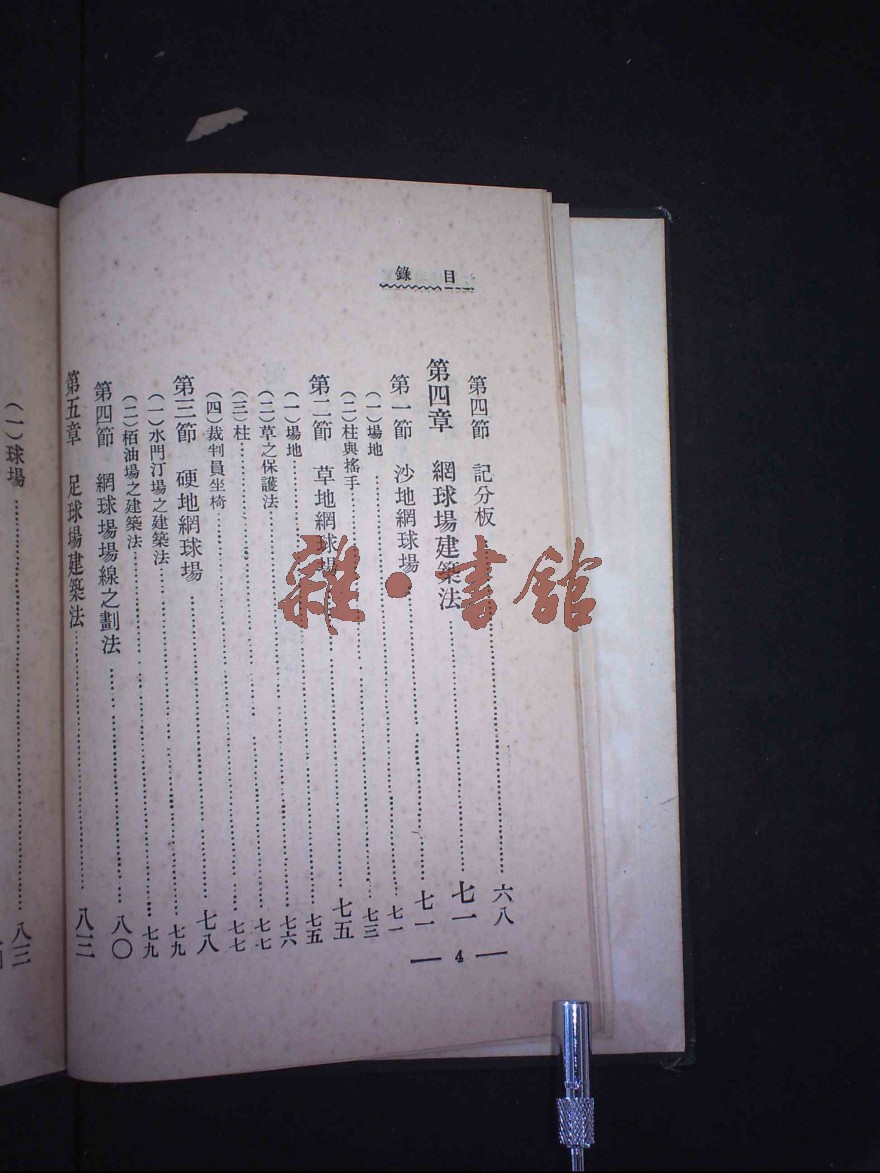 目錄
第四節　記分板……六八
第四章　網球場建築法……七一
第一節　沙地網球場……七一
（一）場地……七一
（二）柱與搖手……七三
第二節　草地網球場……七五
（一）場地……七五
（二）草之保護法……七六
（三）柱……七七
（四）裁判員坐椅……七七
第三節　硬地網球場……七八
（一）水門汀場之建築法……七九
（二）栢油場之建築法……七九
第四節　網球場場線之劃法……八〇
第五章　足球場建築法……八三
（一）球場……八三
4
雜・書館